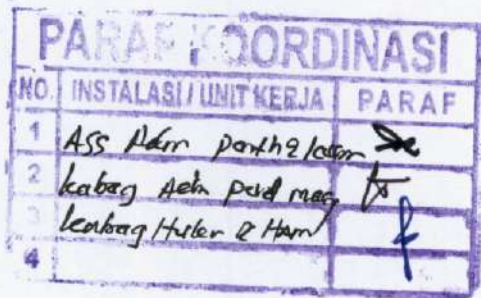 PARAF KOORDINASI
NO. INSTALASI / UNIT KERJA PARAF
1 Ass Adm
2 kabag Adm
3 kabag Hukum & Ham
4